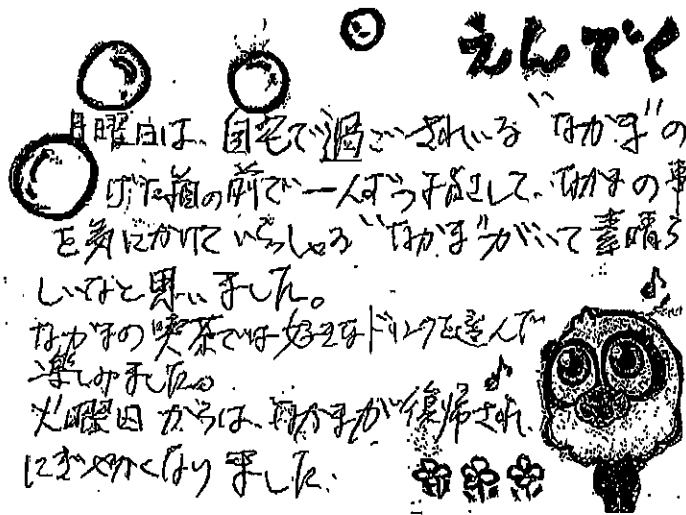 えんでく
月曜日は、自宅で過ごされている"なかま"の
げた箱の前で一人ずつお話して、なかまの事
を気にかけていらっしゃる"なかま"がいて素晴ら
しいなと思いました。
なかまの喫茶では好きなドリンクを選んで
楽しみました。
火曜日からは、なかまが復帰され、
にぎやかになりました。